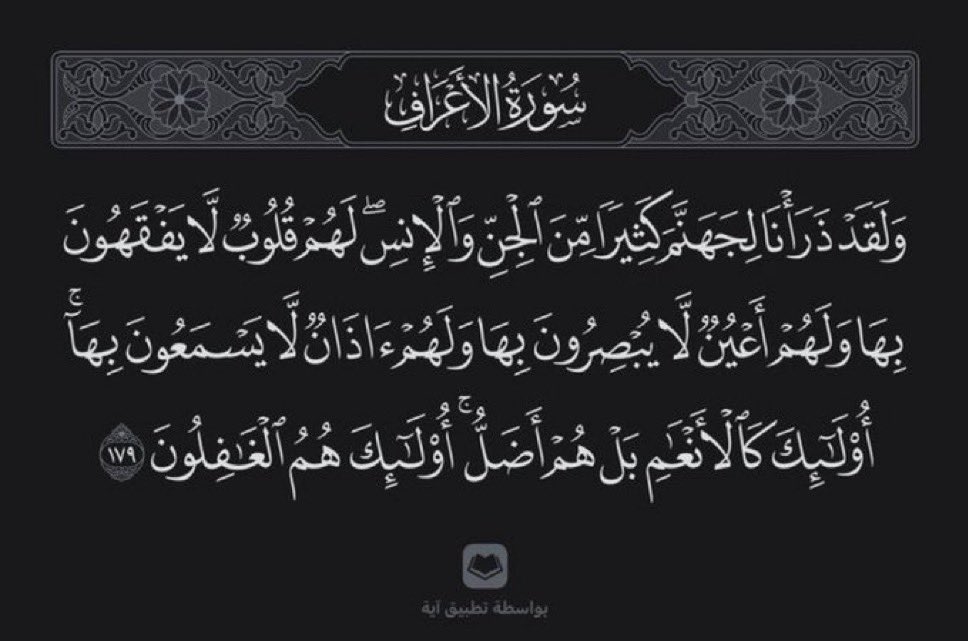 سُورَةُ الأَعْرَافِ
وَلَقَدْ ذَرَأْنَا لِجَهَنَّمَ كَثِيرًا مِّنَ ٱلْجِنِّ وَٱلْإِنسِ ۖ لَهُمْ قُلُوبٌ لَّا يَفْقَهُونَ
بِهَا وَلَهُمْ أَعْيُنٌ لَّا يُبْصِرُونَ بِهَا وَلَهُمْ ءَاذَانٌ لَّا يَسْمَعُونَ بِهَآ ۚ
أُو۟لَـٰٓئِكَ كَٱلْأَنْعَـٰمِ بَلْ هُمْ أَضَلُّ ۚ أُو۟لَـٰٓئِكَ هُمُ ٱلْغَـٰفِلُونَ ١٧٩
بواسطة تطبيق آية